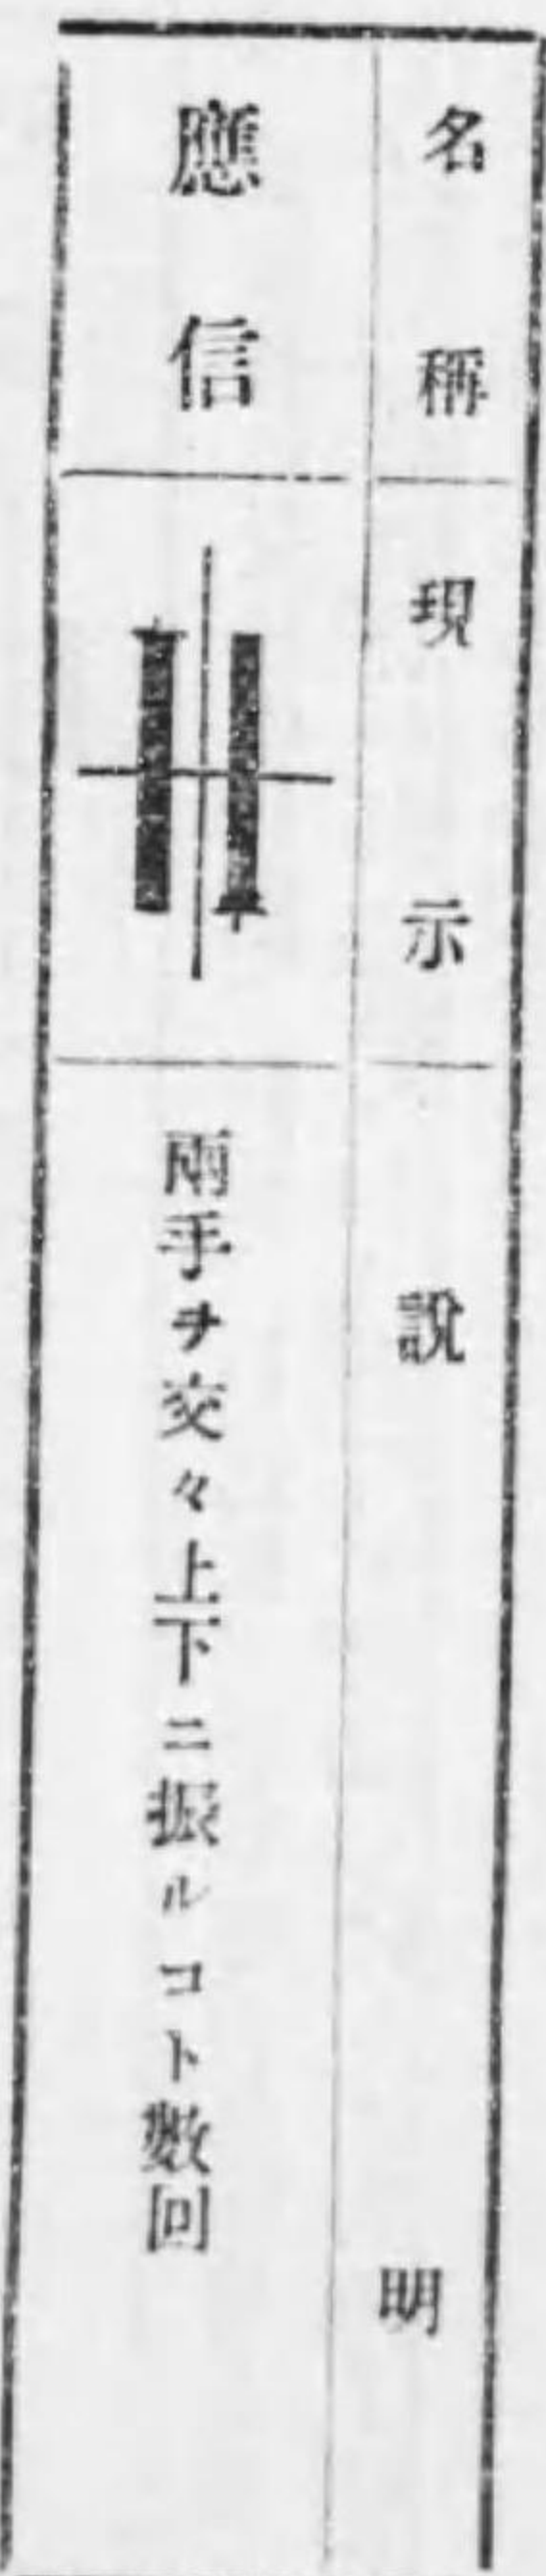 名稱
現示
說明
應信
兩手ヲ交々上下ニ振ルコト數回